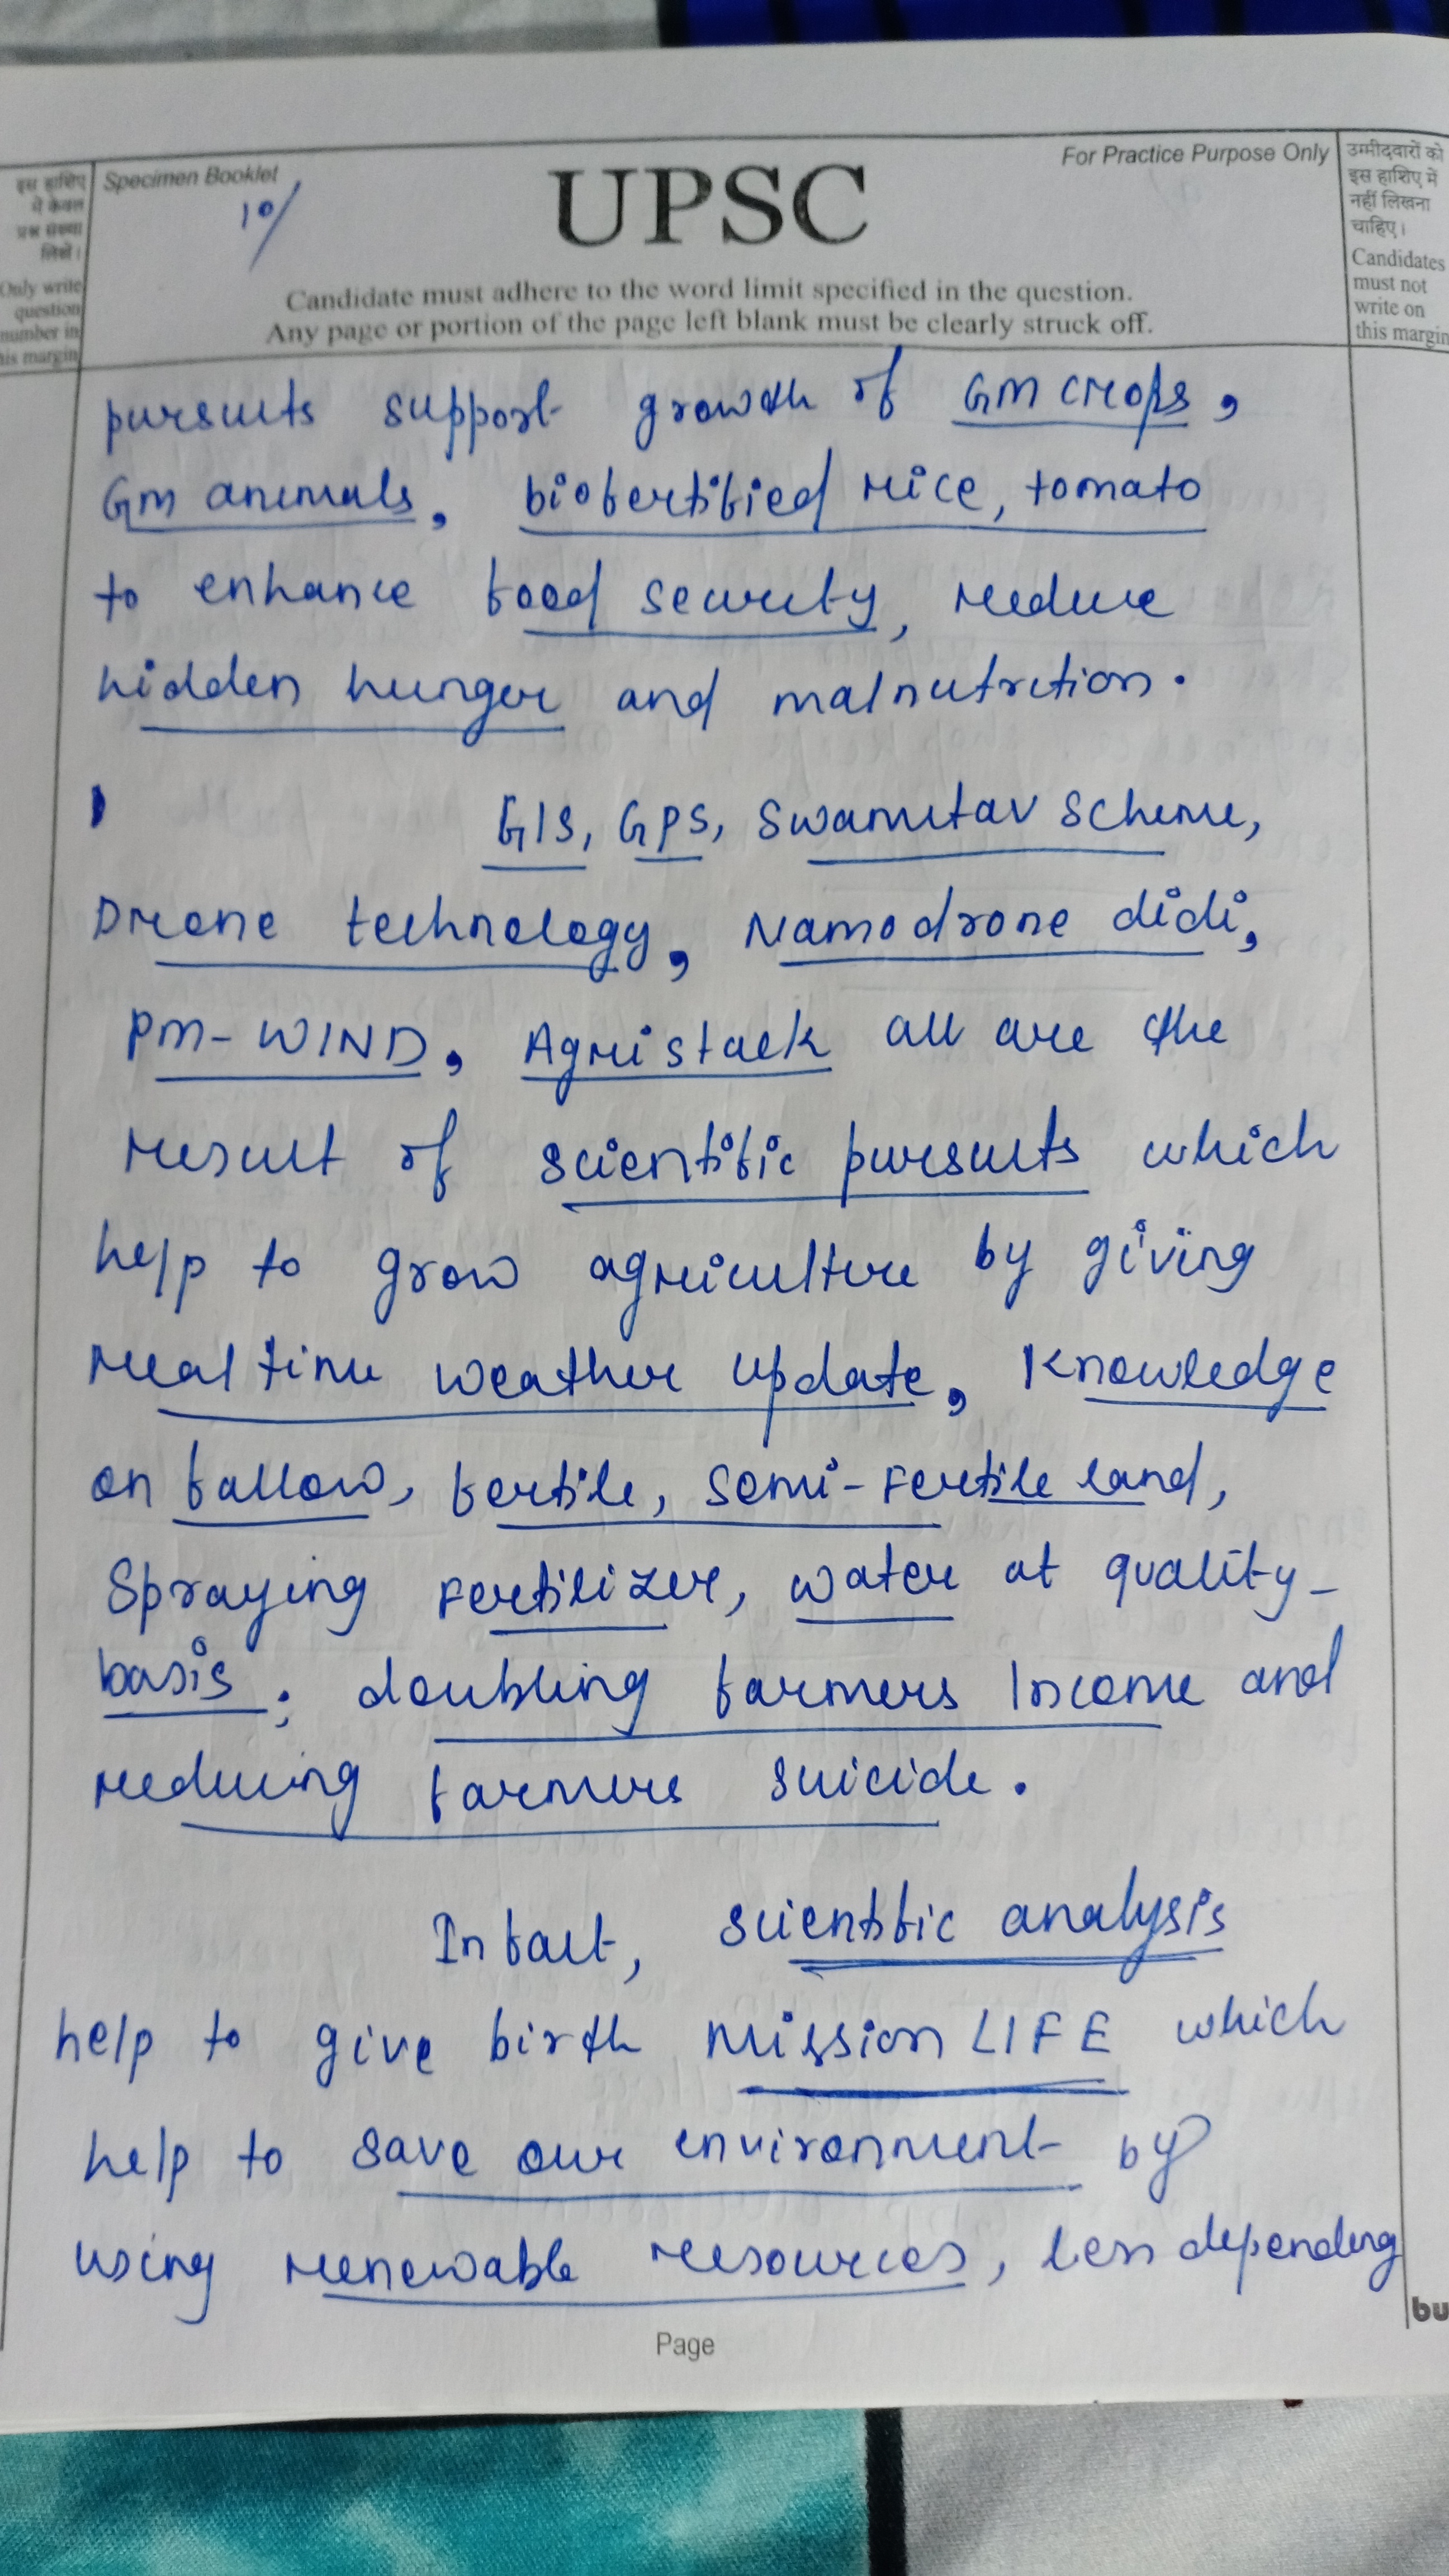 इस हाशिए
में केवल
प्रश्न संख्या
लिखें।
Only write
question
number in
his margin
Specimen Booklet
10/
UPSC
For Practice Purpose Only
उम्मीदवारों को
इस हाशिए में
नहीं लिखना
चाहिए।
Candidates
must not
write on
this margin
Candidate must adhere to the word limit specified in the question.
Any page or portion of the page left blank must be clearly struck off.
pursuits support growth of GM crops,
GM animals, biofertified rice, tomato
to enhance food security, reduce
hidden hunger and malnutrition.
GIS, GPS, Swamitav scheme,
Drone technology, Namodrone didi,
PM-WIND, Agristack all are the
result of scientific pursuits which
help to grow agriculture by giving
real time weather update, Knowledge
on fallow, fertile, semi-fertile land,
Spraying fertilizer, water at quality-
basis; doubling farmers Income and
reducing farmers suicide.
In fact, scientific analysis
help to give birth mission LIFE which
help to save our environment by
using renewable resources, less depending
Page
bu